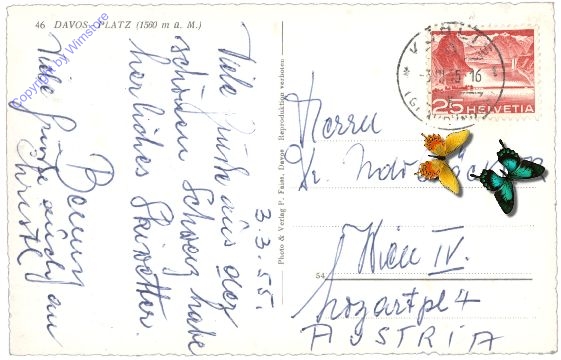 46 DAVOS-PLATZ (1560 m ü. M.)
Copyright by Wimstore
Viele Grüße aus der
schönen Schweiz habe
herrliches Skiwetter.
Benny
Viele Grüße auch an
Christl
3.3.55.
Photo & Verlag P. Faiss, Davos Reproduktion verboten
54
25 HELVETIA
16
Herrn
Wien IV.
Mozartpl 4
AUSTRIA